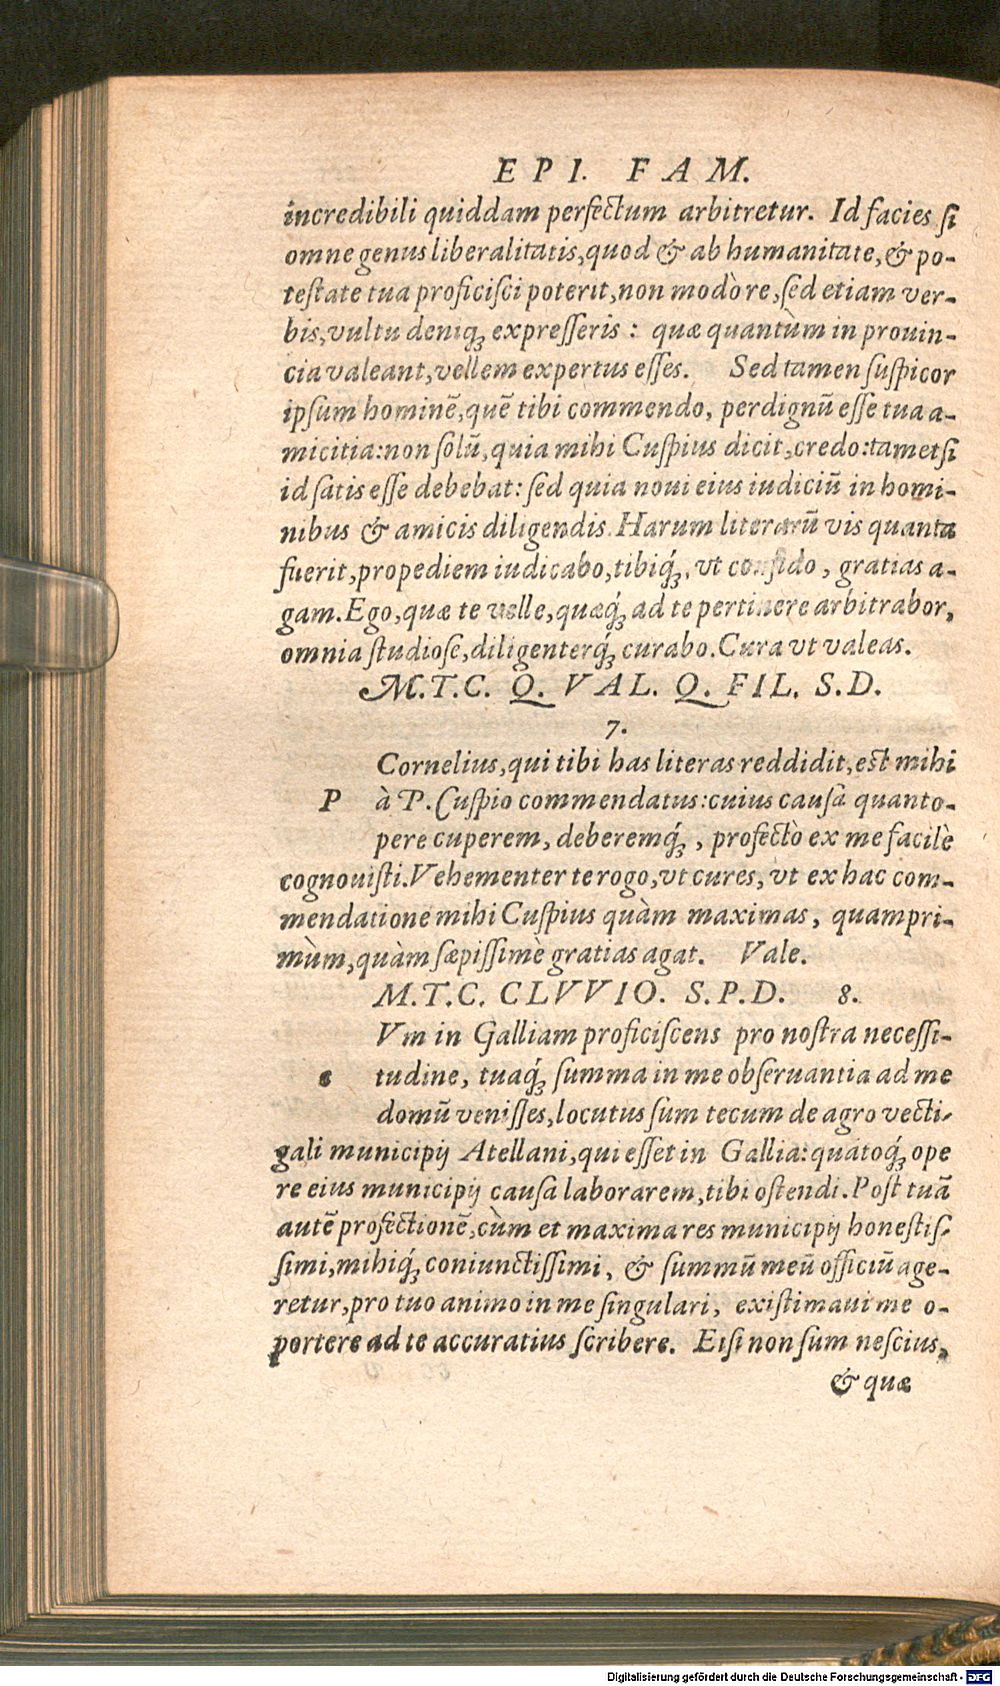 EPI. FAM.
incredibili quiddam perfectum arbitretur. Id facies si
omne genus liberalitatis,quod & ab humanitate,& po-
testate tua proficisci poterit,non modò re,sed etiam ver-
bis,vultu deniq; expresseris : quæ quantùm in prouin-
cia valeant,vellem expertus esses. Sed tamen suspicor
ipsum hominē,quē tibi commendo, perdignū esse tua a-
micitia:non solū,quia mihi Cuspius dicit,credo:tametsi
id satis esse debebat: sed quia noui eius iudiciū in homi-
nibus & amicis diligendis. Harum literarū vis quanta
fuerit,propediem iudicabo,tibiq́;, vt confido, gratias a-
gam.Ego,quæ te velle,quæq́; ad te pertinere arbitrabor,
omnia studiose,diligenterq́; curabo.Cura vt valeas.
M.T.C. Q. VAL. Q. FIL. S.D.
7.
Cornelius,qui tibi has literas reddidit,est mihi
P à P.Cuspio commendatus:cuius causa quanto-
pere cuperem, deberemq́; , profectò ex me facilè
cognouisti.Vehementer te rogo,vt cures, vt ex hac com-
mendatione mihi Cuspius quàm maximas, quampri-
mùm,quàm sæpissimè gratias agat. Vale.
M.T.C. CLVVIO. S.P.D. 8.
Vm in Galliam proficiscens pro nostra necessi-
c tudine, tuaq́; summa in me obseruantia ad me
domū venisses,locutus sum tecum de agro vecti-
gali municipij Atellani,qui esset in Gallia:quātoq́; ope
re eius municipij causa laborarem,tibi ostendi.Post tuā
autē profectionē,cùm et maxima res municipij honestis-
simi,mihiq́; coniunctissimi, & summū meū officiū age-
retur,pro tuo animo in me singulari, existimaui me o-
portere ad te accuratius scribere. Etsi non sum nescius,
& quæ
Digitalisierung gefördert durch die Deutsche Forschungsgemeinschaft - DFG